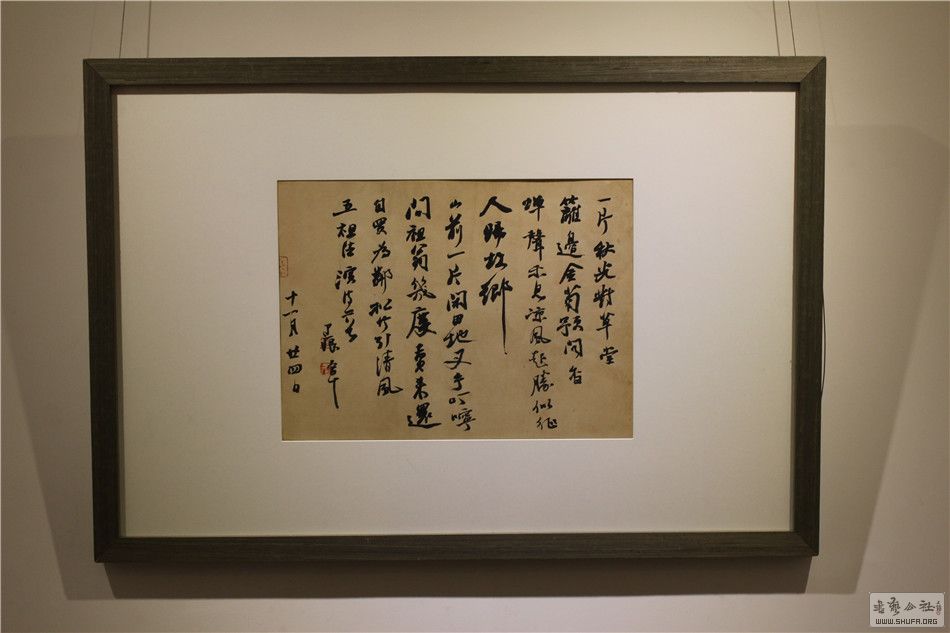 一片秋光對草堂
籬邊金菊預聞香
蟬聲未息涼風起勝似征
人歸故鄉
山前一片閑田地叉手叮嚀
問祖翁幾度賣來還
自買為鄰松竹引清風
五祖法演
十一月廿四日
WWW.SHUFA.ORG